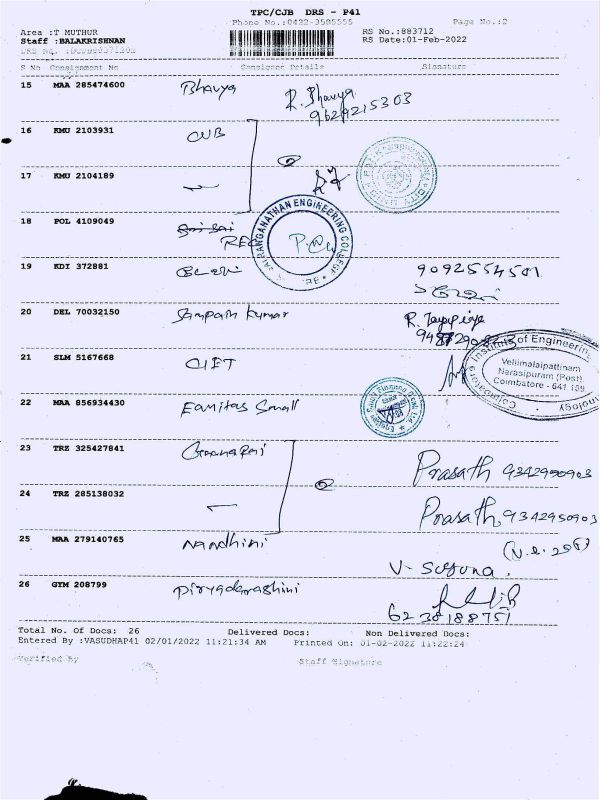 TPC/CJB DRS - P41
Phone No.:0422-3505555
Page No.:2
Area :T MUTHUR
RS No.:883712
Staff :BALAKRISHNAN
RS Date:01-Feb-2022
S No Consignment No Consignee Details Signature
15 MAA 285474600 Bhavya R. Bhavya
9629215303
16 KMU 2103931 CUB
17 KMU 2104189
18 POL 4109049 Sri Sai
REC
RANGANATHAN ENGINEERING COLLEGE
19 KDI 372881 9092554501
20 DEL 70032150 Sampath Kumar
21 SLM 5167668 CIET
Coimbatore Institute of Engineering
Vellimalaipattinam
Narasipuram (Post)
Coimbatore - 641 109
22 MAA 856934430 Equitas Small
23 TRZ 325427841 Prasath 9342950903
24 TRZ 285138032 Prasath, 9342950903
25 MAA 279140765 Nandhini
V. Suguna.
26 GYM 208799 Divyadharshini
6238188751
Total No. Of Docs: 26 Delivered Docs: Non Delivered Docs:
Entered By :VASUDHAP41 02/01/2022 11:21:34 AM Printed On: 01-02-2022 11:22:24
Verified By Staff Signature